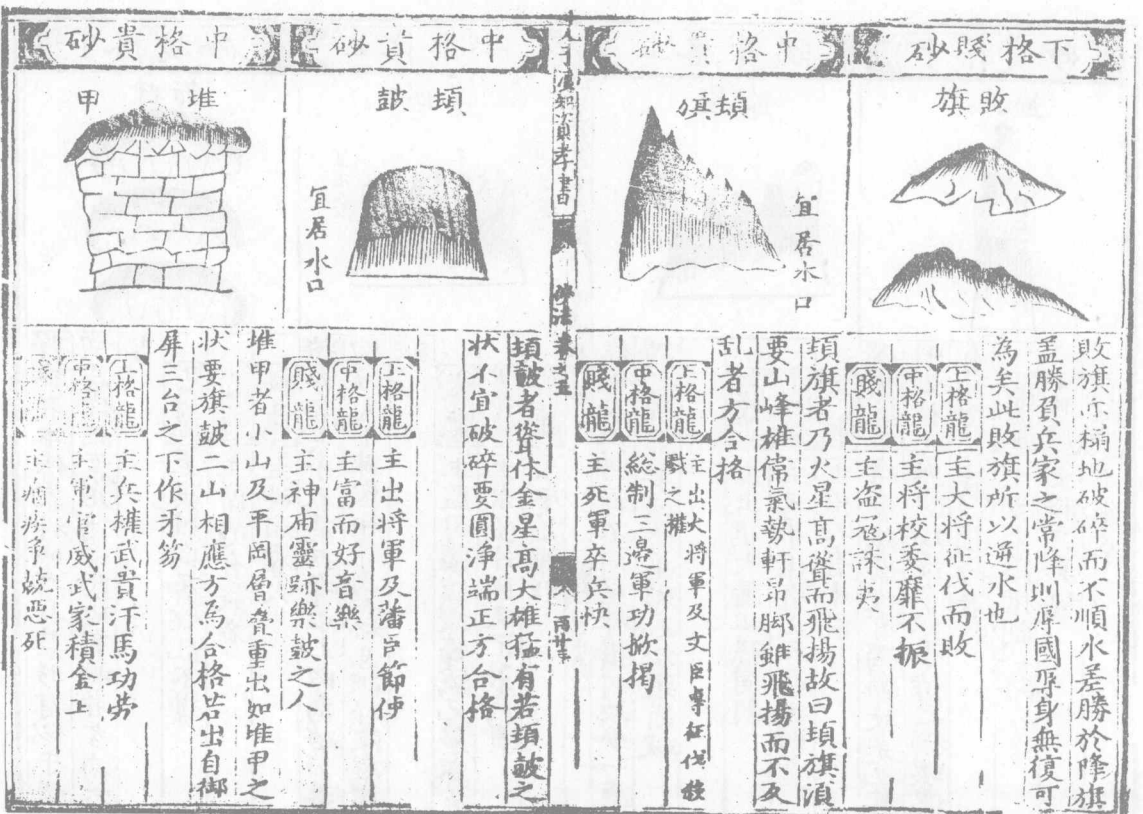 下格賤砂
敗旗
敗旗亦橫地破碎而不順水差勝於降旗
蓋勝負兵家之常降則辱國辱身無復可
為矣此敗旗所以逆水也
上格龍 主大將征伐而敗
中格龍 主將校委靡不振
賤龍 主盗冦誅夷
中格貴砂
頓旗
宜居水口
頓旗者乃火星高聳而飛揚故曰頓旗湏
要山峰雄偉氣勢軒昂脚雖飛揚而不反
乱者方合格
上格龍 主出大將軍及文臣專征伐殺戮之權
中格龍 総制三邉軍功掀揭
賤龍 主死軍卒兵快
人子湏知資孝書
砂法
卷之五
中格貴砂
頓皷
宜居水口
頓皷者聳体金星高大雄猛有若頓皷之
状不宜破碎要圓淨端正方合格
上格龍 主出將軍及藩臣節使
中格龍 主富而好音樂
賤龍 主神庙靈跡樂皷之人
中格貴砂
堆甲
堆甲者小山及平岡叠叠重出如堆甲之
状要旗皷二山相應方為合格若出自御
屏三台之下作牙笏
上格龍 主兵權武貴汗馬功劳
中格龍 主軍官威武家積金玉
主 疾争兢惡死